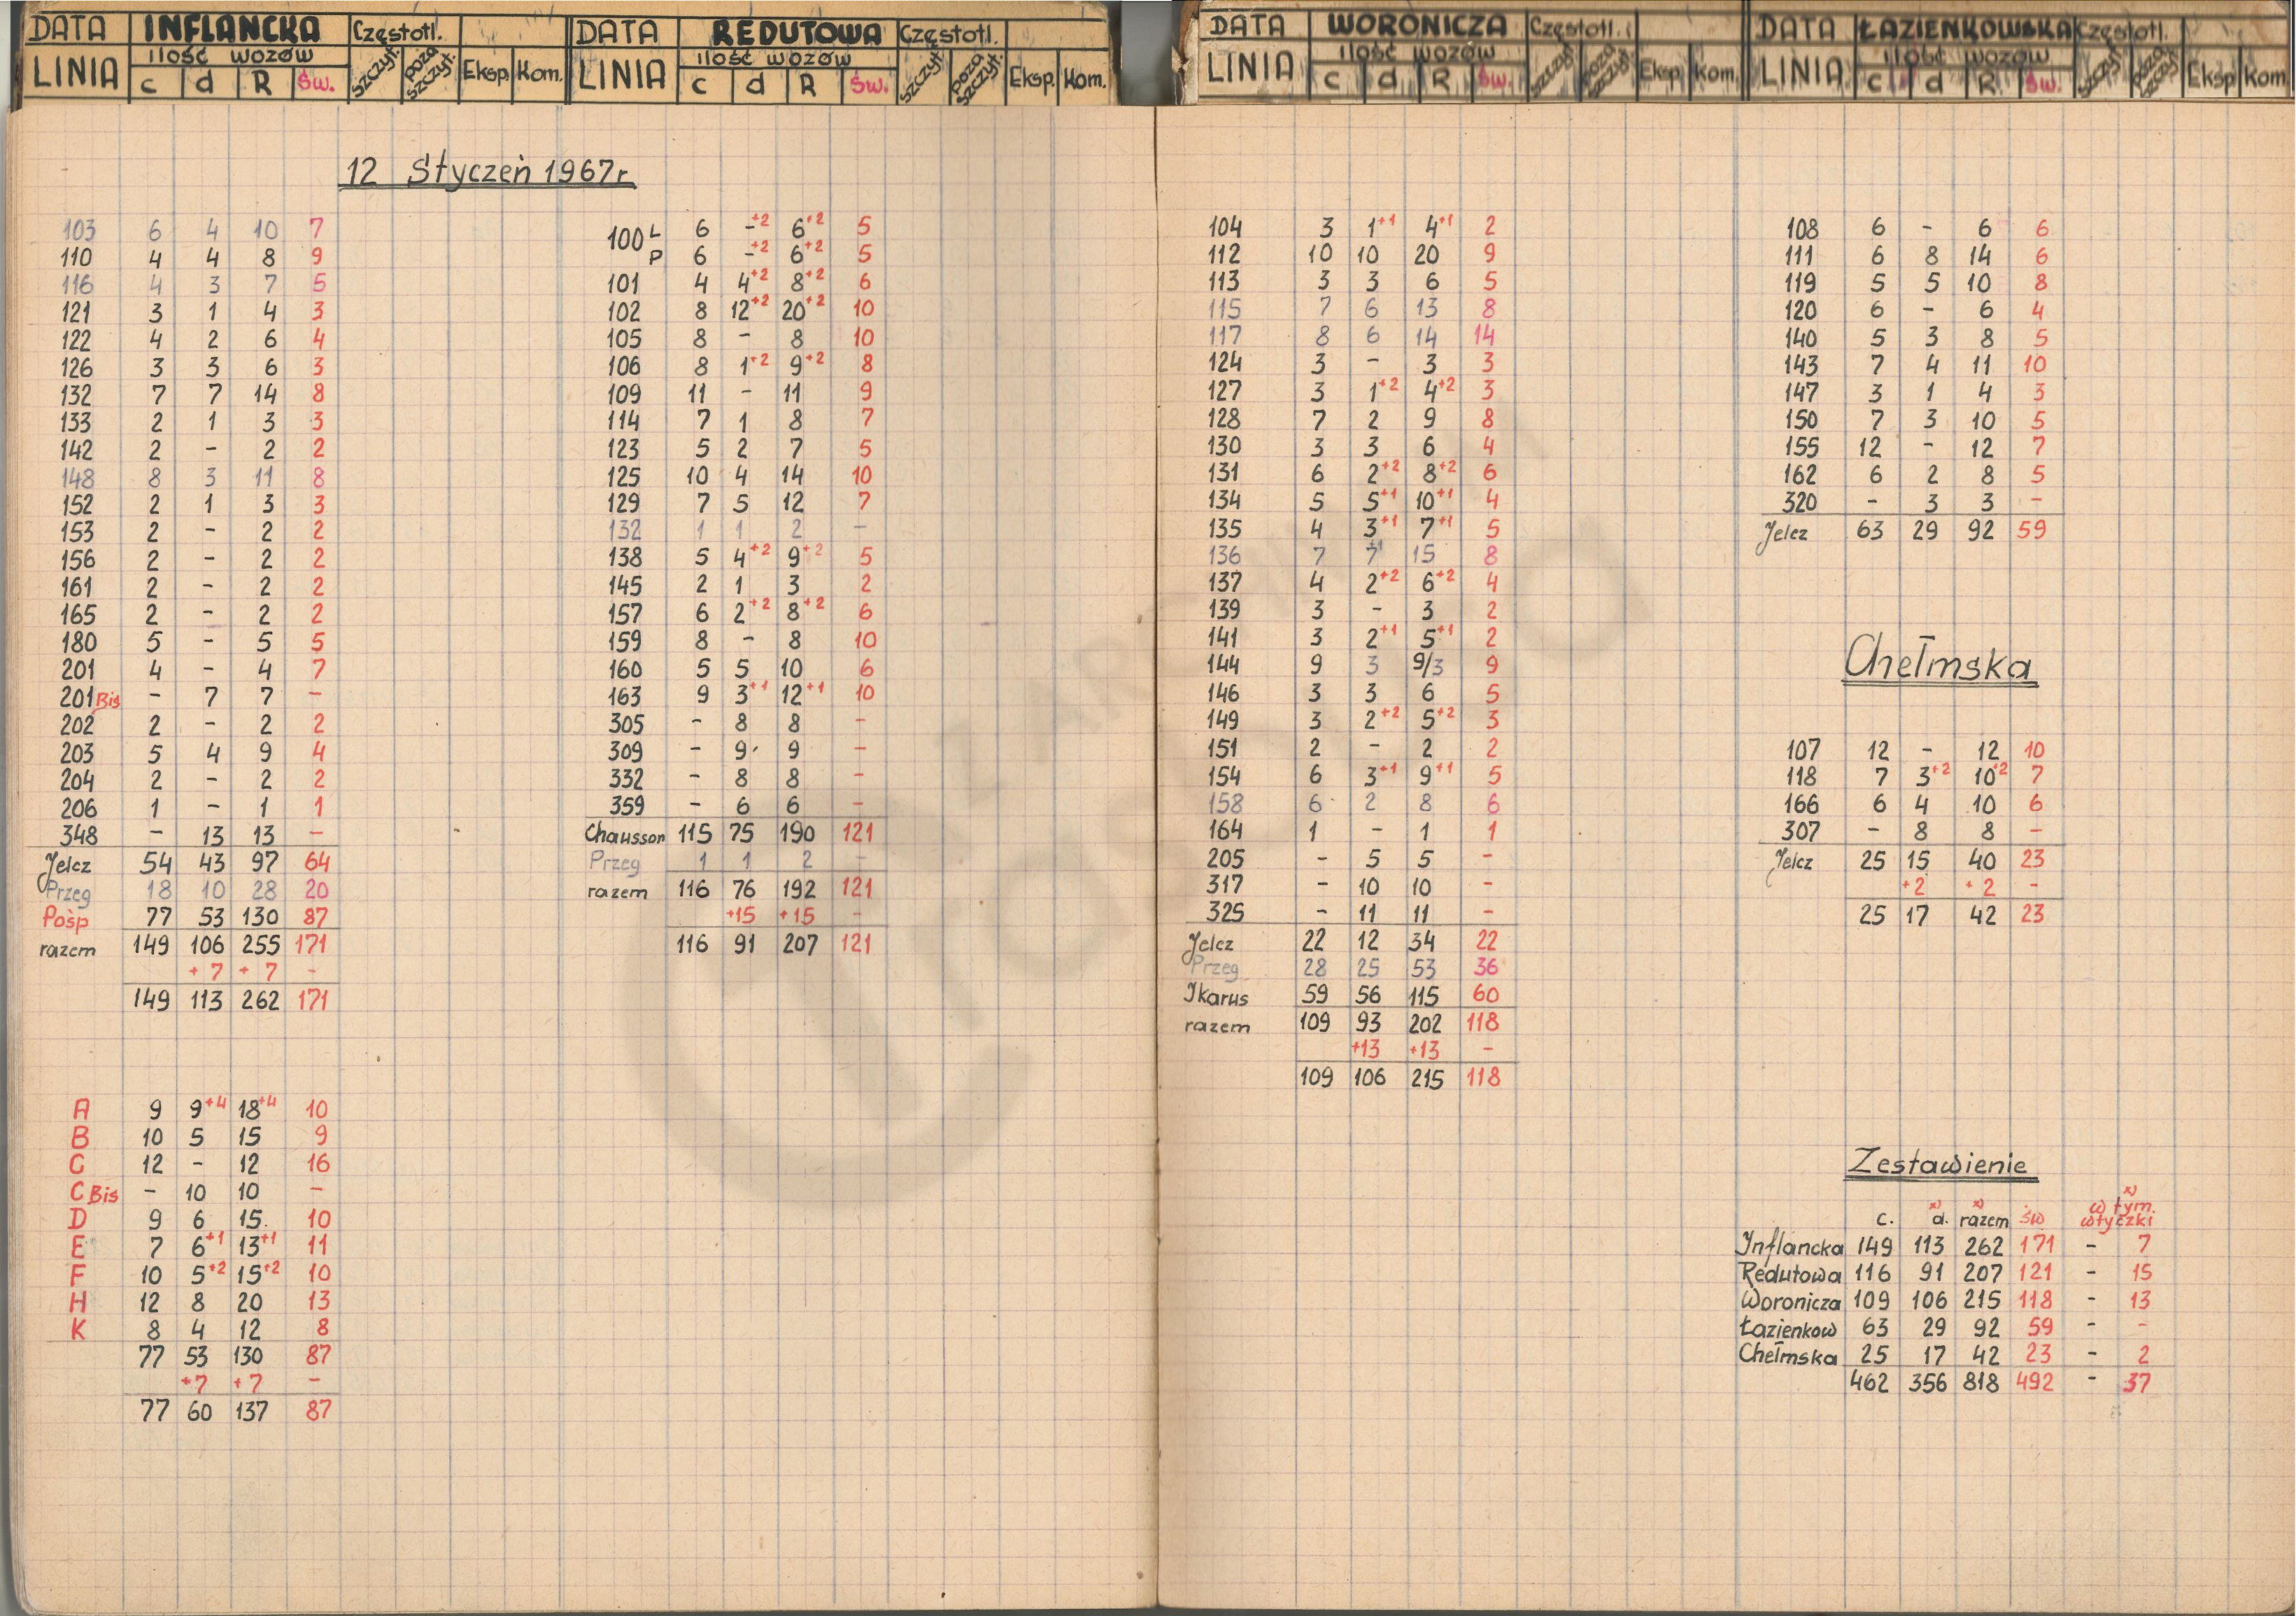 DATA INFLANCKA Częstotl.
LINIA ilość wozów szczyt. poza szczyt. Eksp. Kom.
c d R Św.
DATA REDUTOWA Częstotl.
LINIA ilość wozów szczyt. poza szczyt. Eksp. Kom.
c d R Św.
DATA WORONICZA Częstotl.
LINIA ilość wozów szczyt. poza szczyt. Eksp. Kom.
c d R Św.
DATA ŁAZIENKOWSKA Częstotl.
LINIA ilość wozów szczyt. poza szczyt. Eksp Kom.
c d R Św.
12 Styczeń 1967r.
103 6 4 10 7
110 4 4 8 9
116 4 3 7 5
121 3 1 4 3
122 4 2 6 4
126 3 3 6 3
132 7 7 14 8
133 2 1 3 3
142 2 - 2 2
148 8 3 11 8
152 2 1 3 3
153 2 - 2 2
156 2 - 2 2
161 2 - 2 2
165 2 - 2 2
180 5 - 5 5
201 4 - 4 7
201 Bis - 7 7 -
202 2 - 2 2
203 5 4 9 4
204 2 - 2 2
206 1 - 1 1
348 - 13 13 -
Jelcz 54 43 97 64
Przeg 18 10 28 20
Pośp 77 53 130 87
razem 149 106 255 171
+7 +7 -
149 113 262 171
A 9 9+4 18+4 10
B 10 5 15 9
C 12 - 12 16
C Bis - 10 10 -
D 9 6 15. 10
E 7 6+1 13+1 11
F 10 5+2 15+2 10
H 12 8 20 13
K 8 4 12 8
77 53 130 87
+7 +7 -
77 60 137 87
100 L 6 -+2 6+2 5
P 6 -+2 6+2 5
101 4 4+2 8+2 6
102 8 12+2 20+2 10
105 8 - 8 10
106 8 1+2 9+2 8
109 11 - 11 9
114 7 1 8 7
123 5 2 7 5
125 10 4 14 10
129 7 5 12 7
132 1 1 2 -
138 5 4+2 9+2 5
145 2 1 3 2
157 6 2+2 8+2 6
159 8 - 8 10
160 5 5 10 6
163 9 3+1 12+1 10
305 - 8 8 -
309 - 9 9 -
332 - 8 8 -
359 - 6 6 -
Chausson 115 75 190 121
Przeg 1 1 2 -
razem 116 76 192 121
+15 +15 -
116 91 207 121
104 3 1+1 4+1 2
112 10 10 20 9
113 3 3 6 5
115 7 6 13 8
117 8 6 14 14
124 3 - 3 3
127 3 1+2 4+2 3
128 7 2 9 8
130 3 3 6 4
131 6 2+2 8+2 6
134 5 5+1 10+1 4
135 4 3+1 7+1 5
136 7 7+1 15 8
137 4 2+2 6+2 4
139 3 - 3 2
141 3 2+1 5+1 2
144 9 3 9/3 9
146 3 3 6 5
149 3 2+2 5+2 3
151 2 - 2 2
154 6 3+1 9+1 5
158 6 2 8 6
164 1 - 1 1
205 - 5 5 -
317 - 10 10 -
325 - 11 11 -
Jelcz 22 12 34 22
Przeg 28 25 53 36
Ikarus 59 56 115 60
razem 109 93 202 118
+13 +13 -
109 106 215 118
108 6 - 6 6
111 6 8 14 6
119 5 5 10 8
120 6 - 6 4
140 5 3 8 5
143 7 4 11 10
147 3 1 4 3
150 7 3 10 5
155 12 - 12 7
162 6 2 8 5
320 - 3 3 -
Jelcz 63 29 92 59
Chełmska
107 12 - 12 10
118 7 3+2 10+2 7
166 6 4 10 6
307 - 8 8 -
Jelcz 25 15 40 23
+2 +2 -
25 17 42 23
Zestawienie
c. x) d. x) razem św x) w tym. wtyczki
Inflancka 149 113 262 171 - 7
Redutowa 116 91 207 121 - 15
Woronicza 109 106 215 118 - 13
Łazienkow 63 29 92 59 - -
Chełmska 25 17 42 23 - 2
462 356 818 492 - 37